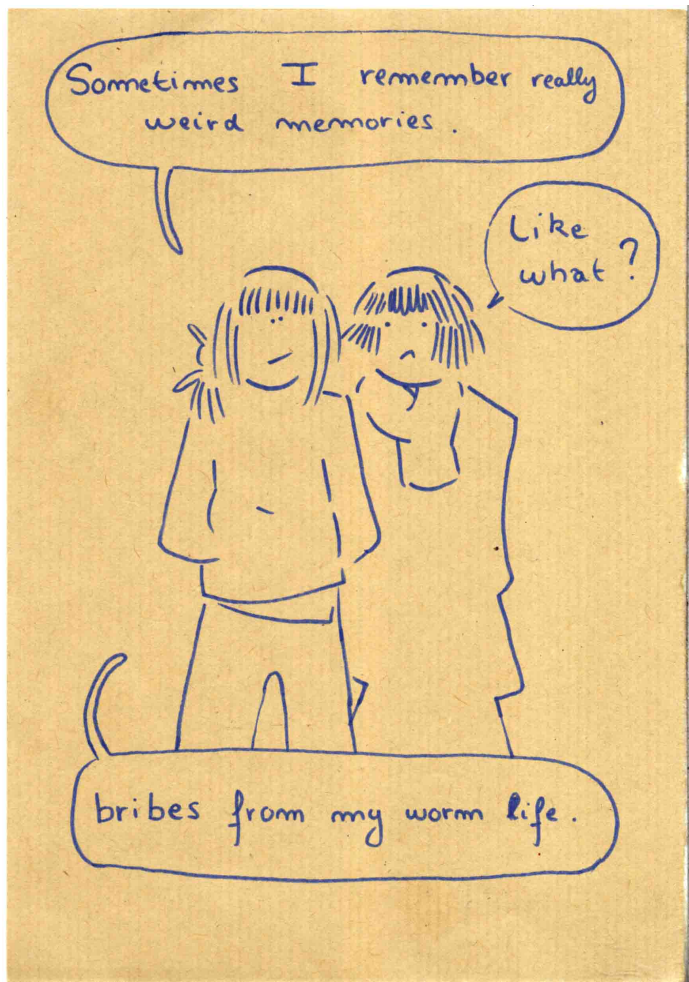 Sometimes I remember really
weird memories.
Like
what?
bribes from my worm life.